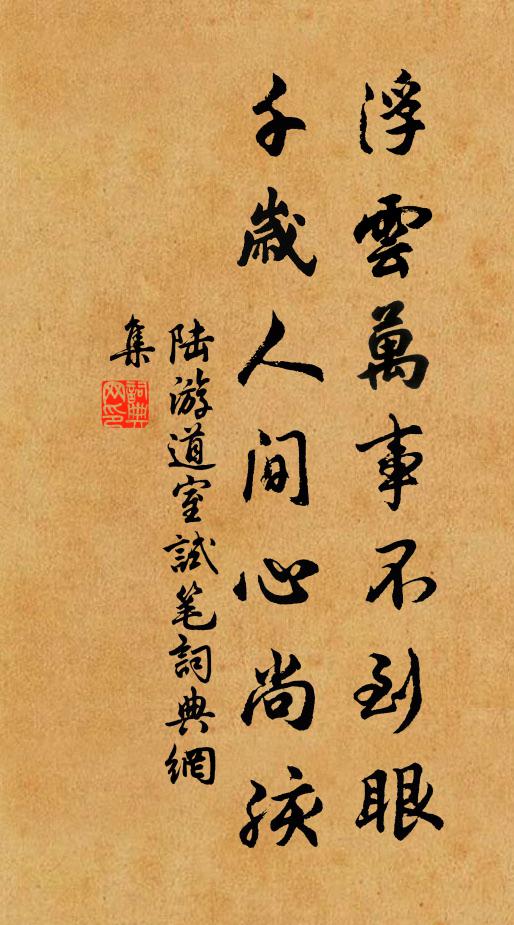 浮雲萬事不到眼
千歲人间心尚孩
陆游道室試笔詞典網
集
詞典网印